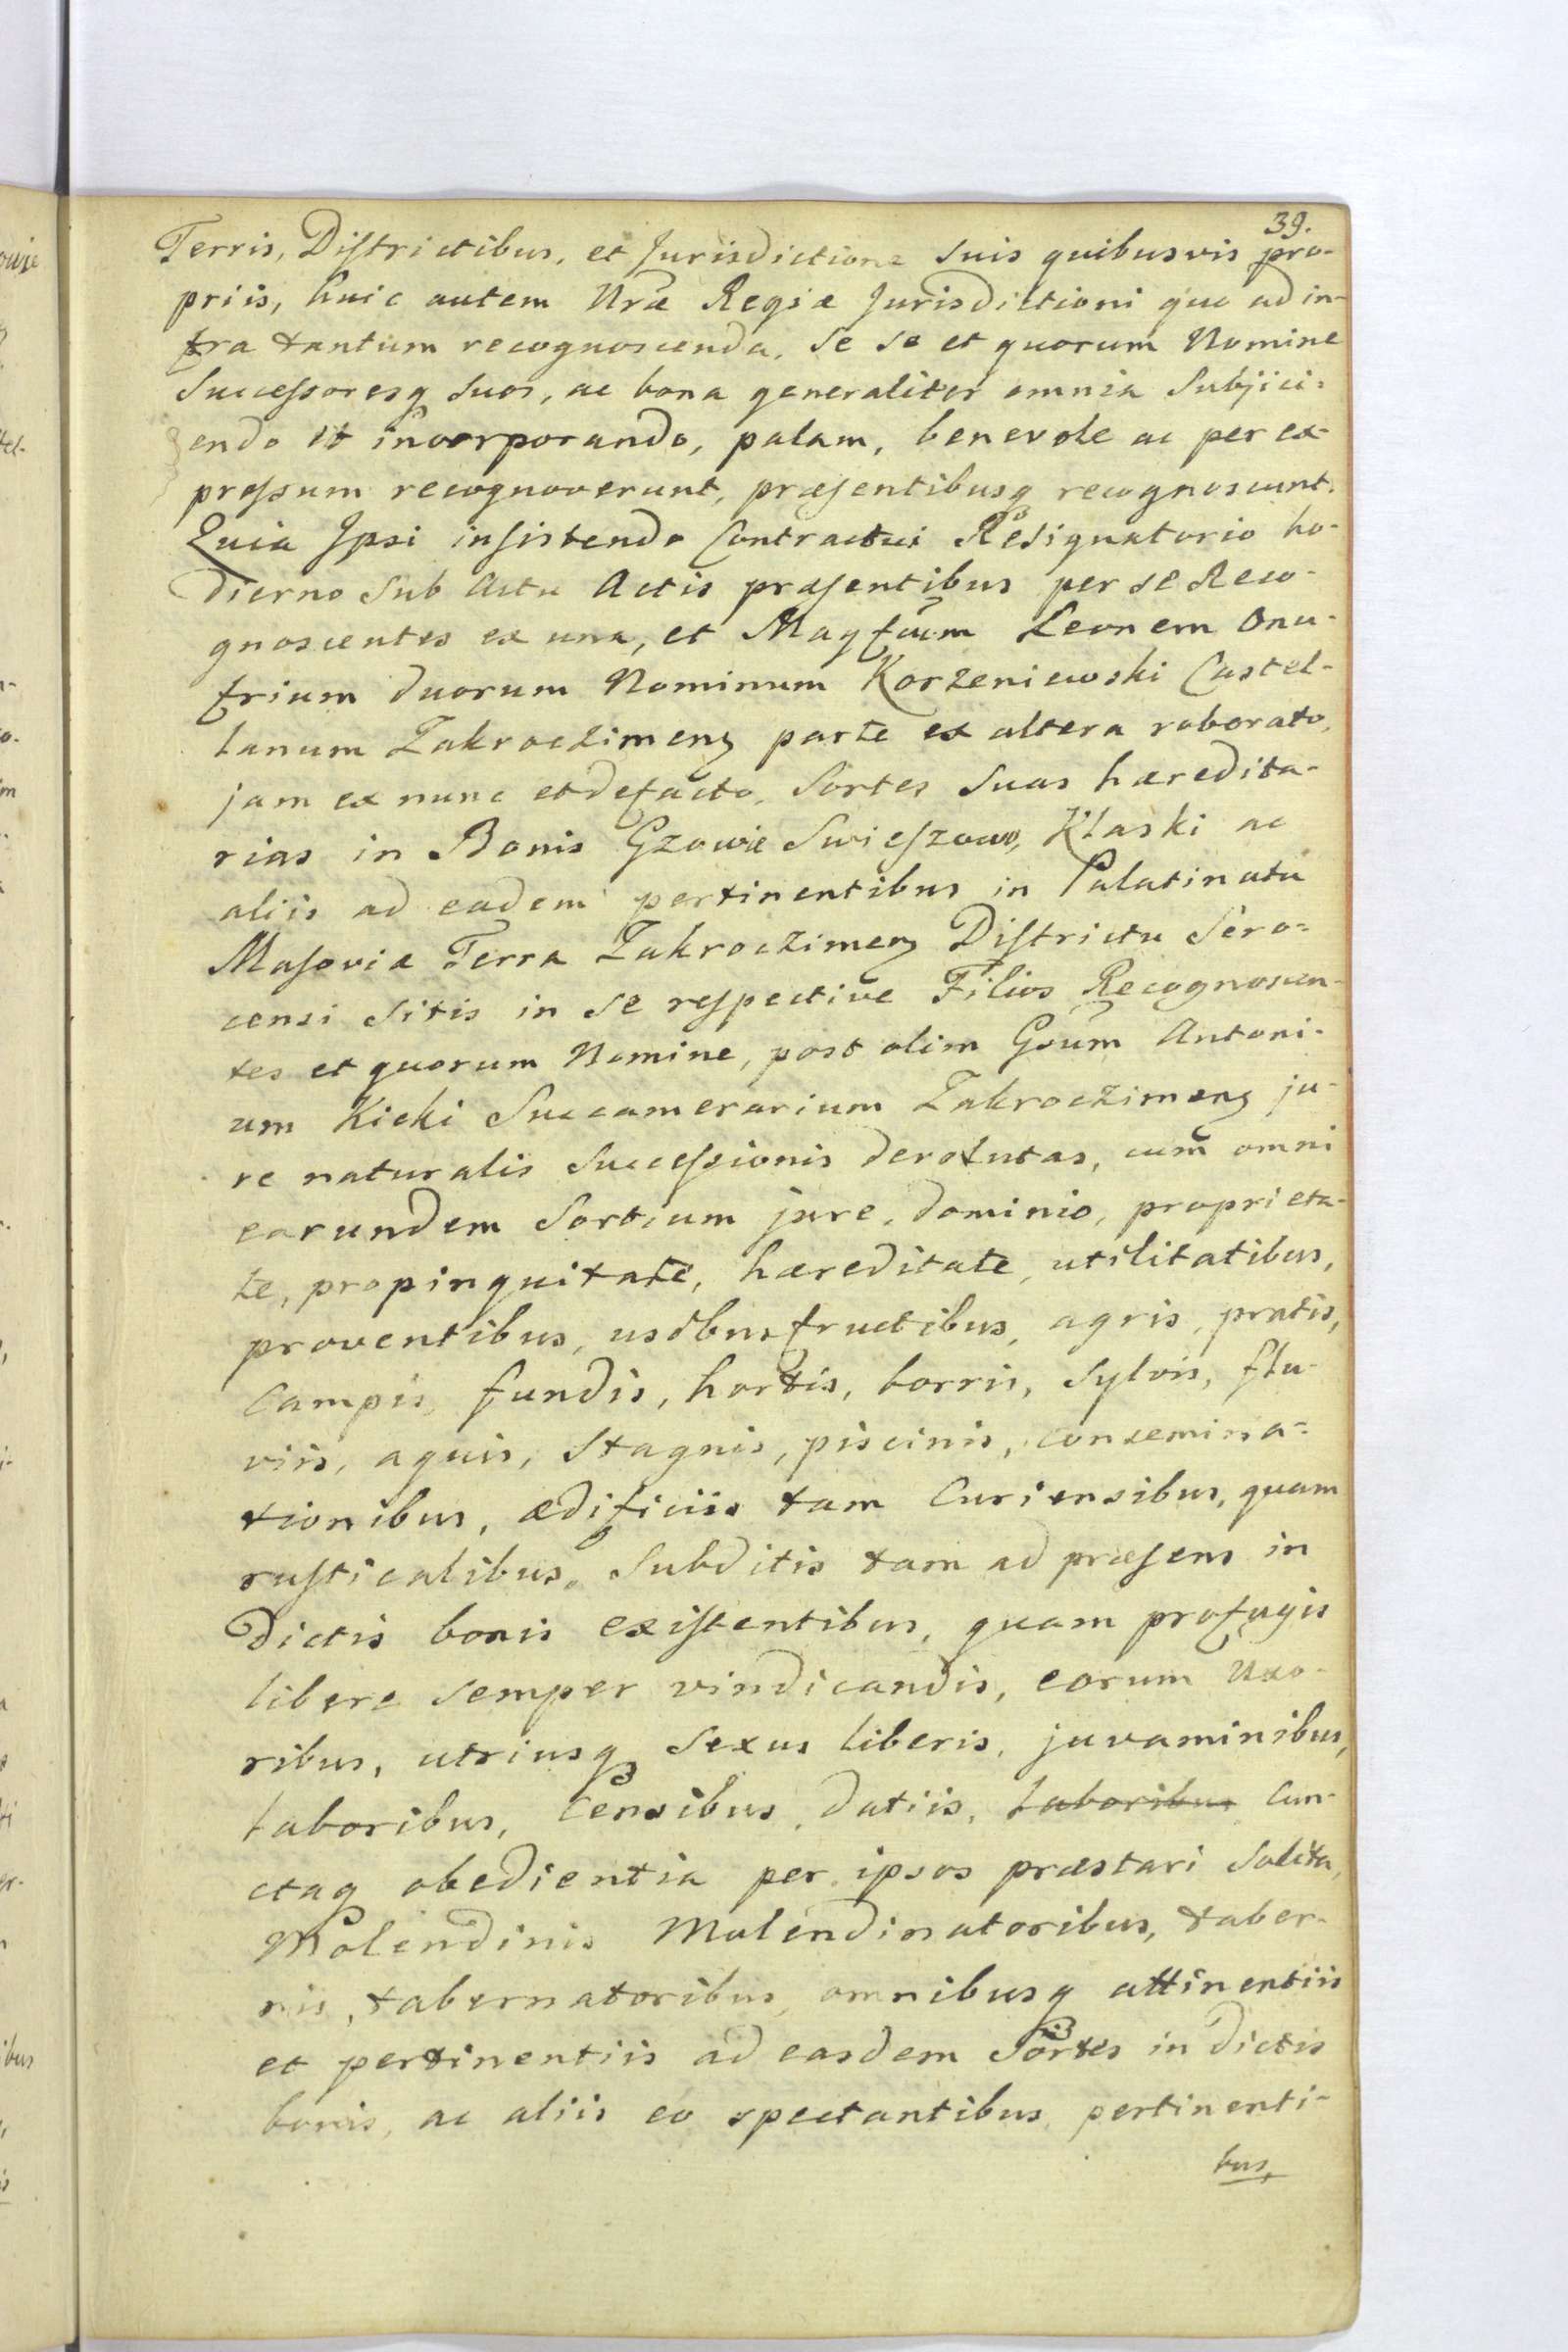 39.
Terris, Districtibus, et Jurisdictione suis quibusvis pro-
priis, huic autem Nræ Regiæ Jurisdictioni quo ad in-
fra tantum recognoscenda, se se et quorum Nomine
Successoresq suos, ac bona generaliter omnia subjici=
endo et incorporando, palam, benevole ac per ex-
pressum recognoverunt, præsentibusq recognoscunt.
Quia Ipsi insistendo Contractui Resignatorio ho-
dierno sub Actu Actis præsentibus per se Reco-
gnoscentes ex una, et Magfcum Leonem Onu-
frium duorum Nominum Korzeniewski Castel-
lanum Zakroczimens parte ex altera roborato,
jam ex nunc et defacto, Sortes suas hæredita-
rias in Bonis Gzowie Swieszowo, Klaski ac
aliis ad eadem pertinentibus in Palatinatu
Masoviæ Terra Zakroczimens Districtu Sero=
censi sitis in se respective Filios Recognoscen-
tes et quorum Nomine, post olim Gsum Antoni-
um Kicki Succamerarium Zakroczimens ju-
re naturalis Successionis devolutas, cum omni
earundem Sortium jure, dominio, proprieta-
te, propinquitate, hæreditate, utilitatibus,
proventibus, usibusfructibus, agris, pratis,
Campis, fundis, hortis, borris, sylvis, flu-
viis, aquis, stagnis, piscinis, consemina=
tionibus, ædificiis tam Curiensibus, quam
rusticalibus, Subditis tam ad præsens in
Dictis bonis existentibus, quam profugis
libere semper vindicandis, eorum Uxo-
ribus, utriusq sexus liberis, juvaminibus,
laboribus, Censibus, datiis, laboribus Cun-
ctaq obedientia per ipsos præstari solita,
Molendinis Molendinatoribus, taber-
nis, tabernatoribus, omnibusq attinentiis
et pertinentiis ad easdem Sortes in dictis
bonis, ac aliis eo spectantibus pertinenti-
bus,